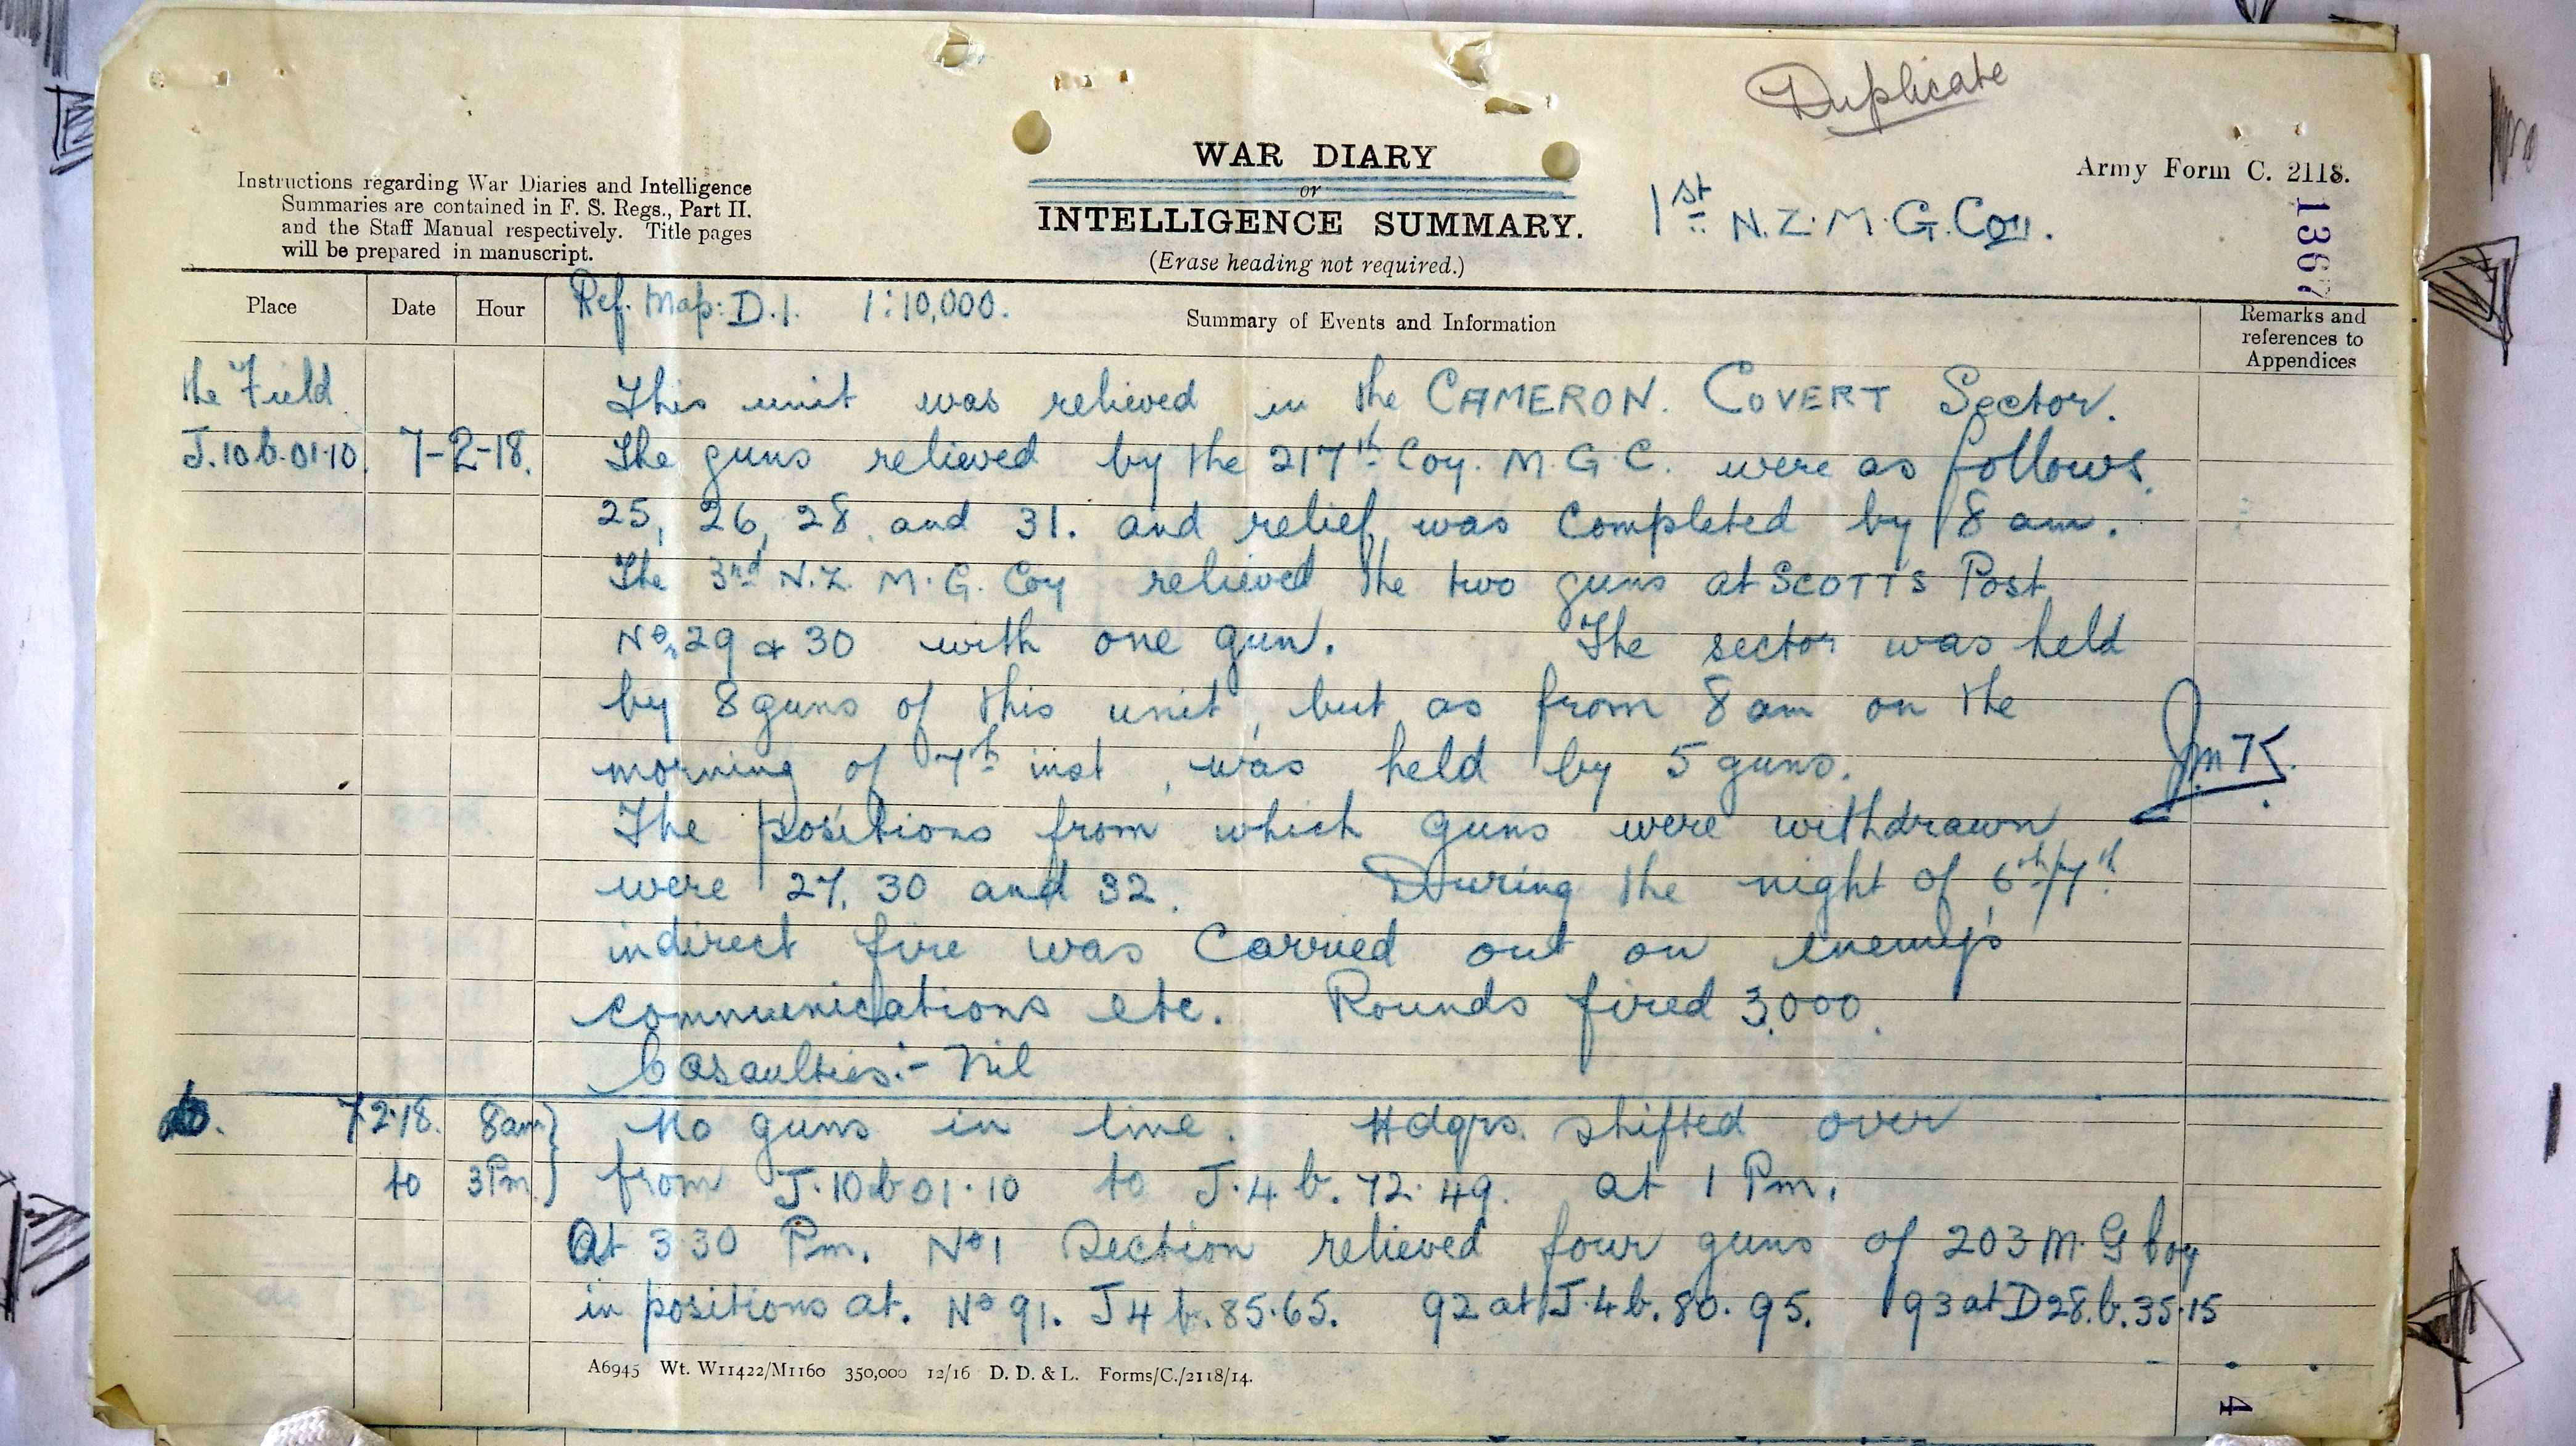 Duplicate
WAR DIARY
or
INTELLIGENCE SUMMARY.
(Erase heading not required.)
Instructions regarding War Diaries and Intelligence
Summaries are contained in F. S. Regs., Part II.
and the Staff Manual respectively. Title pages
will be prepared in manuscript.
Army Form C. 2118.
1st N.Z.M.G.Coy.
1367
Place Date Hour Summary of Events and Information Remarks and references to Appendices
Ref. Map: D.1. 1:10,000.
the Field. This unit was relieved in the CAMERON. COVERT Sector.
J.10.b.01.10. 7-2-18. The guns relieved by the 217th Coy. M.G.C. were as follows.
25, 26, 28, and 31. and relief was completed by 8 am.
The 3rd N.Z. M.G. Coy relieved the two guns at SCOTTS Post
Nos 29 & 30 with one gun. The sector was held
by 8 guns of this unit, but as from 8 am on the
morning of 7th inst, was held by 5 guns.
The positions from which guns were withdrawn
were 27, 30 and 32. During the night of 6th/7th
indirect fire was carried out on enemy's
communications etc. Rounds fired 3,000.
Casaulties:- Nil
do. 7.2.18. 8am } No guns in line. Hdqrs. shifted over
to 3 Pm. } from J.10.b 01.10 to J.4.b.72.49. at 1 Pm.
At 3.30 Pm. No 1 Section relieved four guns of 203 M.G Coy
in positions at. No 91. J4 b.85.65. 92 at J.4.b.80.95. 93 at D28.b.35.15
A6945 Wt. W11422/M1160 350,000 12/16 D. D. & L. Forms/C./2118/14.
4